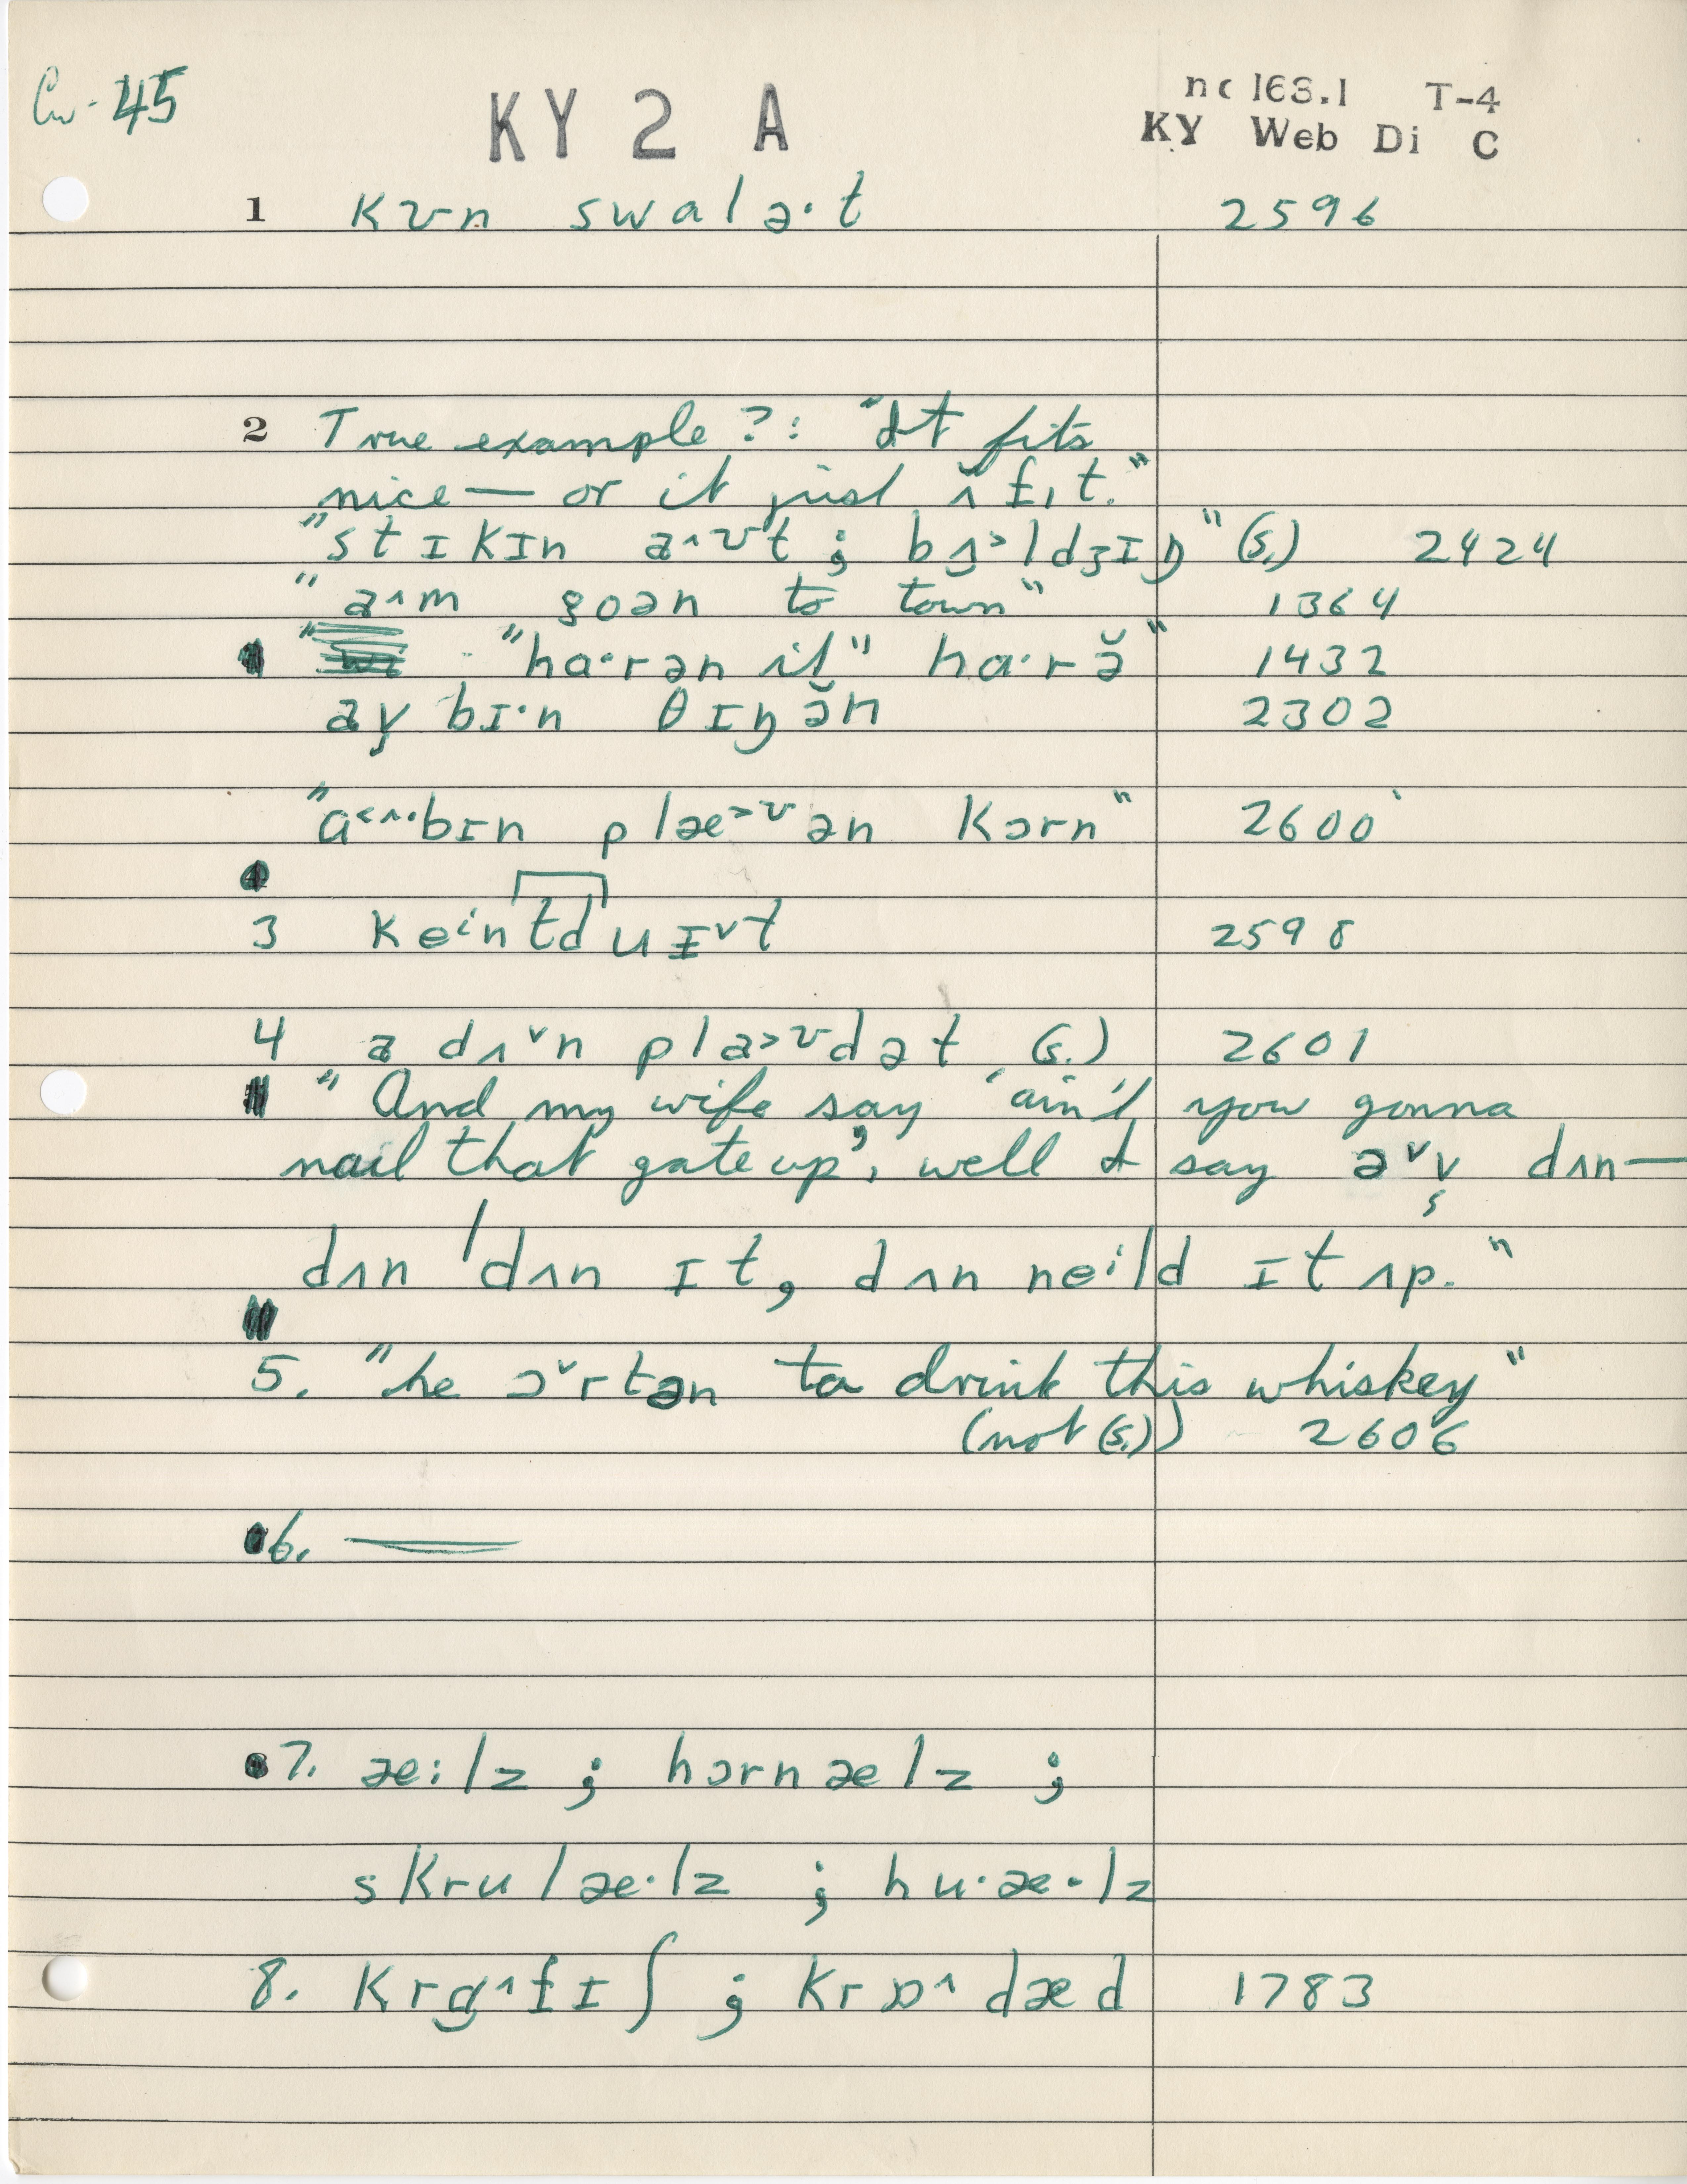 Cw-45
KY 2 A
nc 163.1 T-4
KY Web Di C
1 kʊn swalə·t 2596
2 True example?: "It fits
nice — or it just ʌ̆ fɪt."
"stɪkɪn a^ʊt ; bʌ>ldʒɪŋ" (s.) 2424
"a^m goən to town" 1364
"ha·rən it" ha·rə̆" 1432
ay bɪ·n θɪŋə̆n 2302
"a<^·bɪn plæ>ʊən kɔrn" 2600
3 keintduɪ˅t 2598
4 a dʌ˅n pla>ʊdət (s.) 2601
"And my wife say 'ain't you gonna
nail that gate up', well I say ə˅y dʌn—
dʌn 'dʌn ɪt, dʌn neild ɪt ʌp."
5. "he ɔ˅rtən ta drink this whiskey"
(not (s.)) 2606
6. ——
7. æ:lz ; hɔrnælz ;
skrulæ·lz ; hu·æ·lz
8. krɑ^fɪʃ ; krɒ^dæd 1783